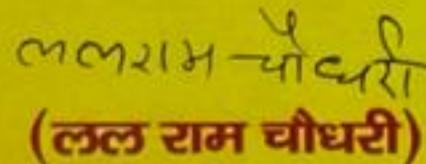 ललराम चौधरी
(लल राम चौधरी)